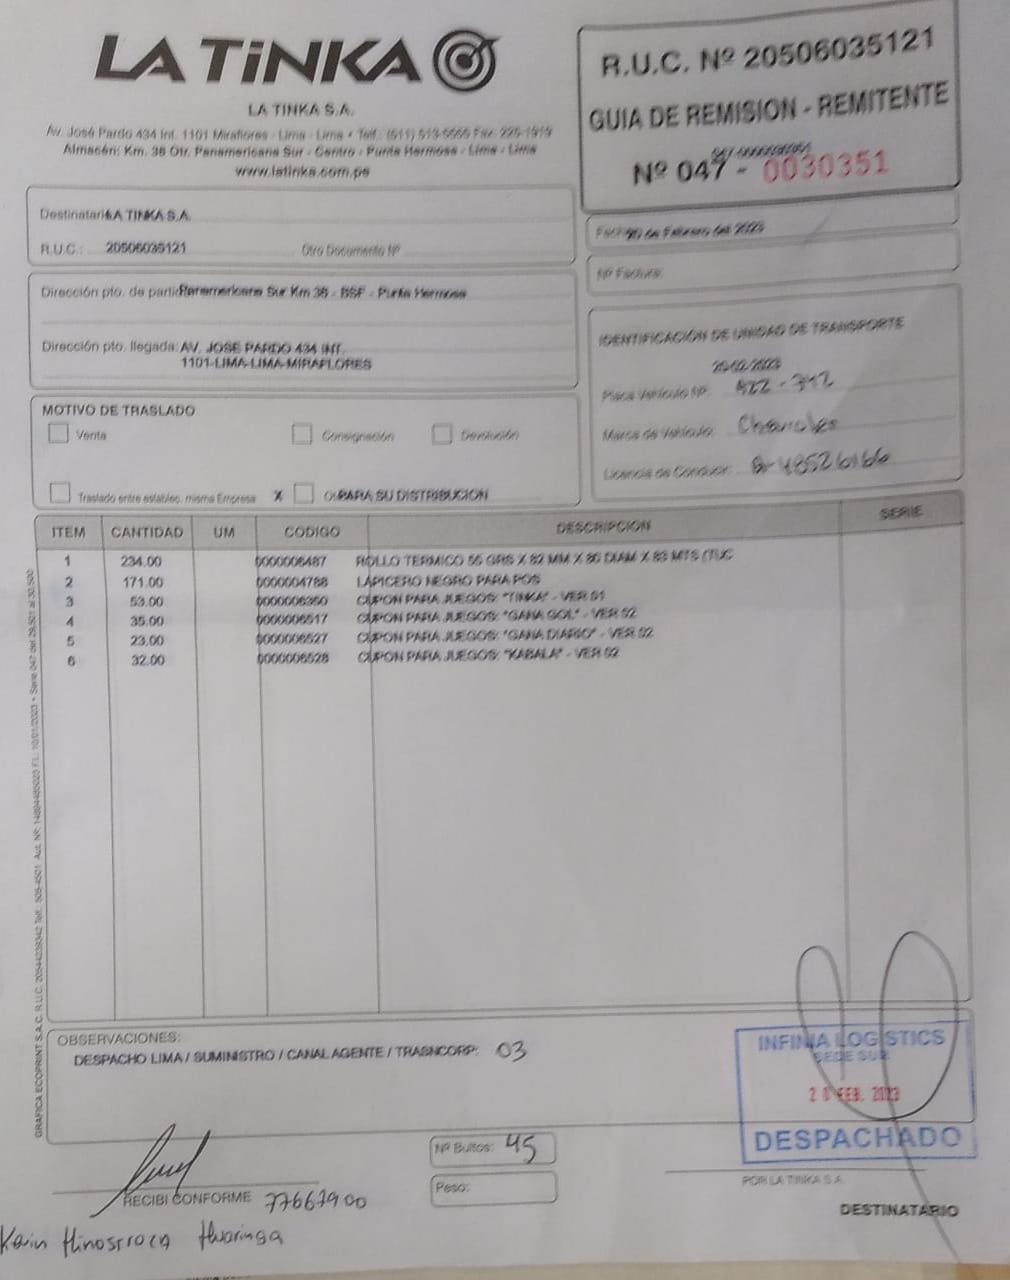 LA TiNKA
LA TINKA S.A.
Av. José Pardo 434 Int. 1101 Miraflores - Lima - Lima • Telf.: (511) 513-5555 Fax: 225-1919
Almacén: Km. 38 Otr. Panamericana Sur - Centro - Punta Hermosa - Lima - Lima
www.latinka.com.pe
R.U.C. Nº 20506035121
GUIA DE REMISION - REMITENTE
Nº 047 - 0030351
Destinatario LA TINKA S.A.
R.U.C.: 20506035121 Otro Documento Nº
Fecha 20 de Febrero del 2023
Nº Factura:
Dirección pto. de partida Panamericana Sur Km 38 - BSF - Punta Hermosa
Dirección pto. llegada: AV. JOSE PARDO 434 INT.
1101-LIMA-LIMA-MIRAFLORES
IDENTIFICACIÓN DE UNIDAD DE TRANSPORTE
20/02/2023
Placa Vehículo Nº:
Marca de Vehículo:
Licencia de Conducir:
MOTIVO DE TRASLADO
Venta Consignación Devolución
Traslado entre establec. misma Empresa X PARA SU DISTRIBUCION
ITEM CANTIDAD UM CODIGO DESCRIPCION SERIE
1 234.00 0000006487 ROLLO TERMICO 55 GRS X 82 MM X 80 DIAM X 83 MTS (TUC
2 171.00 0000004788 LAPICERO NEGRO PARA POS
3 53.00 0000006350 CUPON PARA JUEGOS: "TINKA" - VER 01
4 35.00 0000006517 CUPON PARA JUEGOS: "GANA GOL" - VER 02
5 23.00 0000006527 CUPON PARA JUEGOS: "GANA DIARIO" - VER 02
6 32.00 0000006528 CUPON PARA JUEGOS: "KABALA" - VER 02
OBSERVACIONES:
DESPACHO LIMA / SUMINISTRO / CANAL AGENTE / TRASNCORP: 03
INFINIA LOGISTICS
SEDE SUR
20 FEB. 2023
DESPACHADO
Nº Bultos: 45
Peso:
RECIBI CONFORME 77667900
POR LA TINKA S.A.
DESTINATARIO
Kevin Hinostroza Huaringa